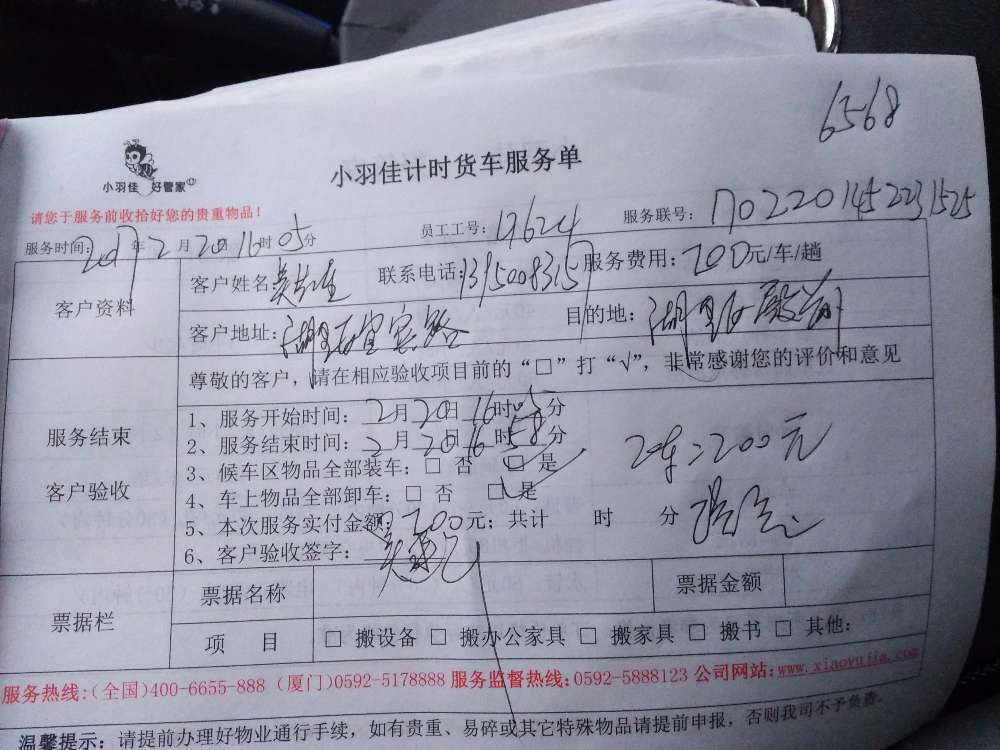 6568
小羽佳 好管家
小羽佳计时货车服务单
请您于服务前收拾好您的贵重物品！
服务时间：2017年2月20日16时05分 员工工号：17624 服务联号：1702201452231525
客户资料
客户姓名：吴先生 联系电话：13950083157 服务费用：200元/车/趟
客户地址：湖里区宜宾路 目的地：湖里区殿前
尊敬的客户，请在相应验收项目前的“□”打“√”，非常感谢您的评价和意见
服务结束
客户验收
1、服务开始时间：2月20日16时05分
2、服务结束时间：2月20日16时58分
3、候车区物品全部装车：□ 否 □ 是
4、车上物品全部卸车：□ 否 □ 是
5、本次服务实付金额：200元；共计 时 分
6、客户验收签字：吴
200元
票据栏
票据名称 票据金额
项 目 □ 搬设备 □ 搬办公家具 □ 搬家具 □ 搬书 □ 其他：
服务热线：(全国)400-6655-888 (厦门)0592-5178888 服务监督热线：0592-5888123 公司网站：www.xiaoyujia.com
温馨提示：请提前办理好物业通行手续，如有贵重、易碎或其它特殊物品请提前申报，否则我司不予负责.